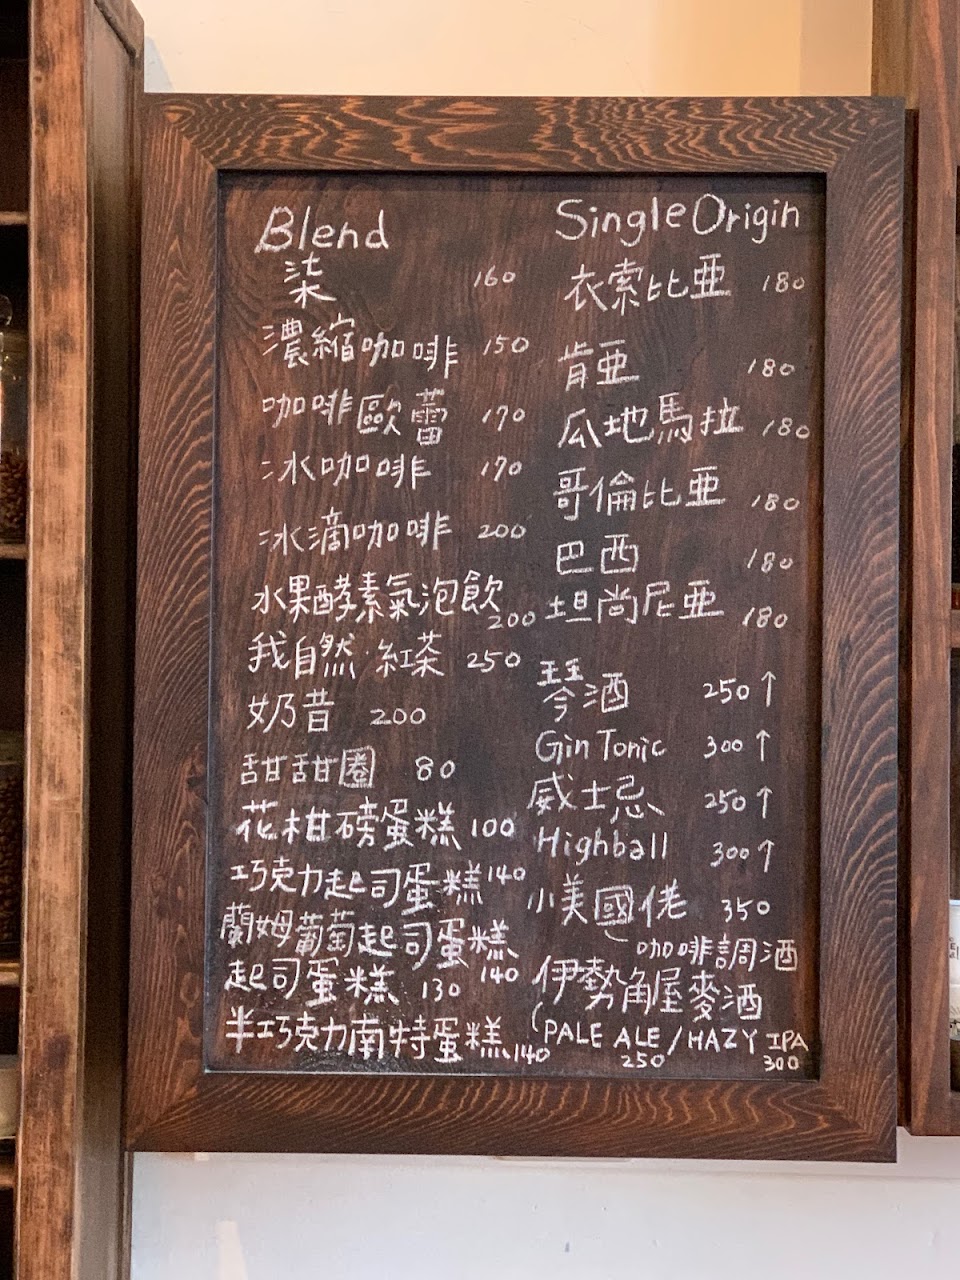 Blend
柒 160
濃縮咖啡 150
咖啡歐蕾 170
冰咖啡 170
冰滴咖啡 200
水果酵素氣泡飲 200
我自然·紅茶 250
奶昔 200
甜甜圈 80
花柑磅蛋糕 100
巧克力起司蛋糕 140
蘭姆葡萄起司蛋糕 140
起司蛋糕 130
半巧克力南特蛋糕 140
Single Origin
衣索比亞 180
肯亞 180
瓜地馬拉 180
哥倫比亞 180
巴西 180
坦尚尼亞 180
琴酒 250↑
Gin Tonic 300↑
威士忌 250↑
Highball 300↑
小美國佬 350
咖啡調酒
伊勢角屋麥酒
(PALE ALE / HAZY IPA
250 300